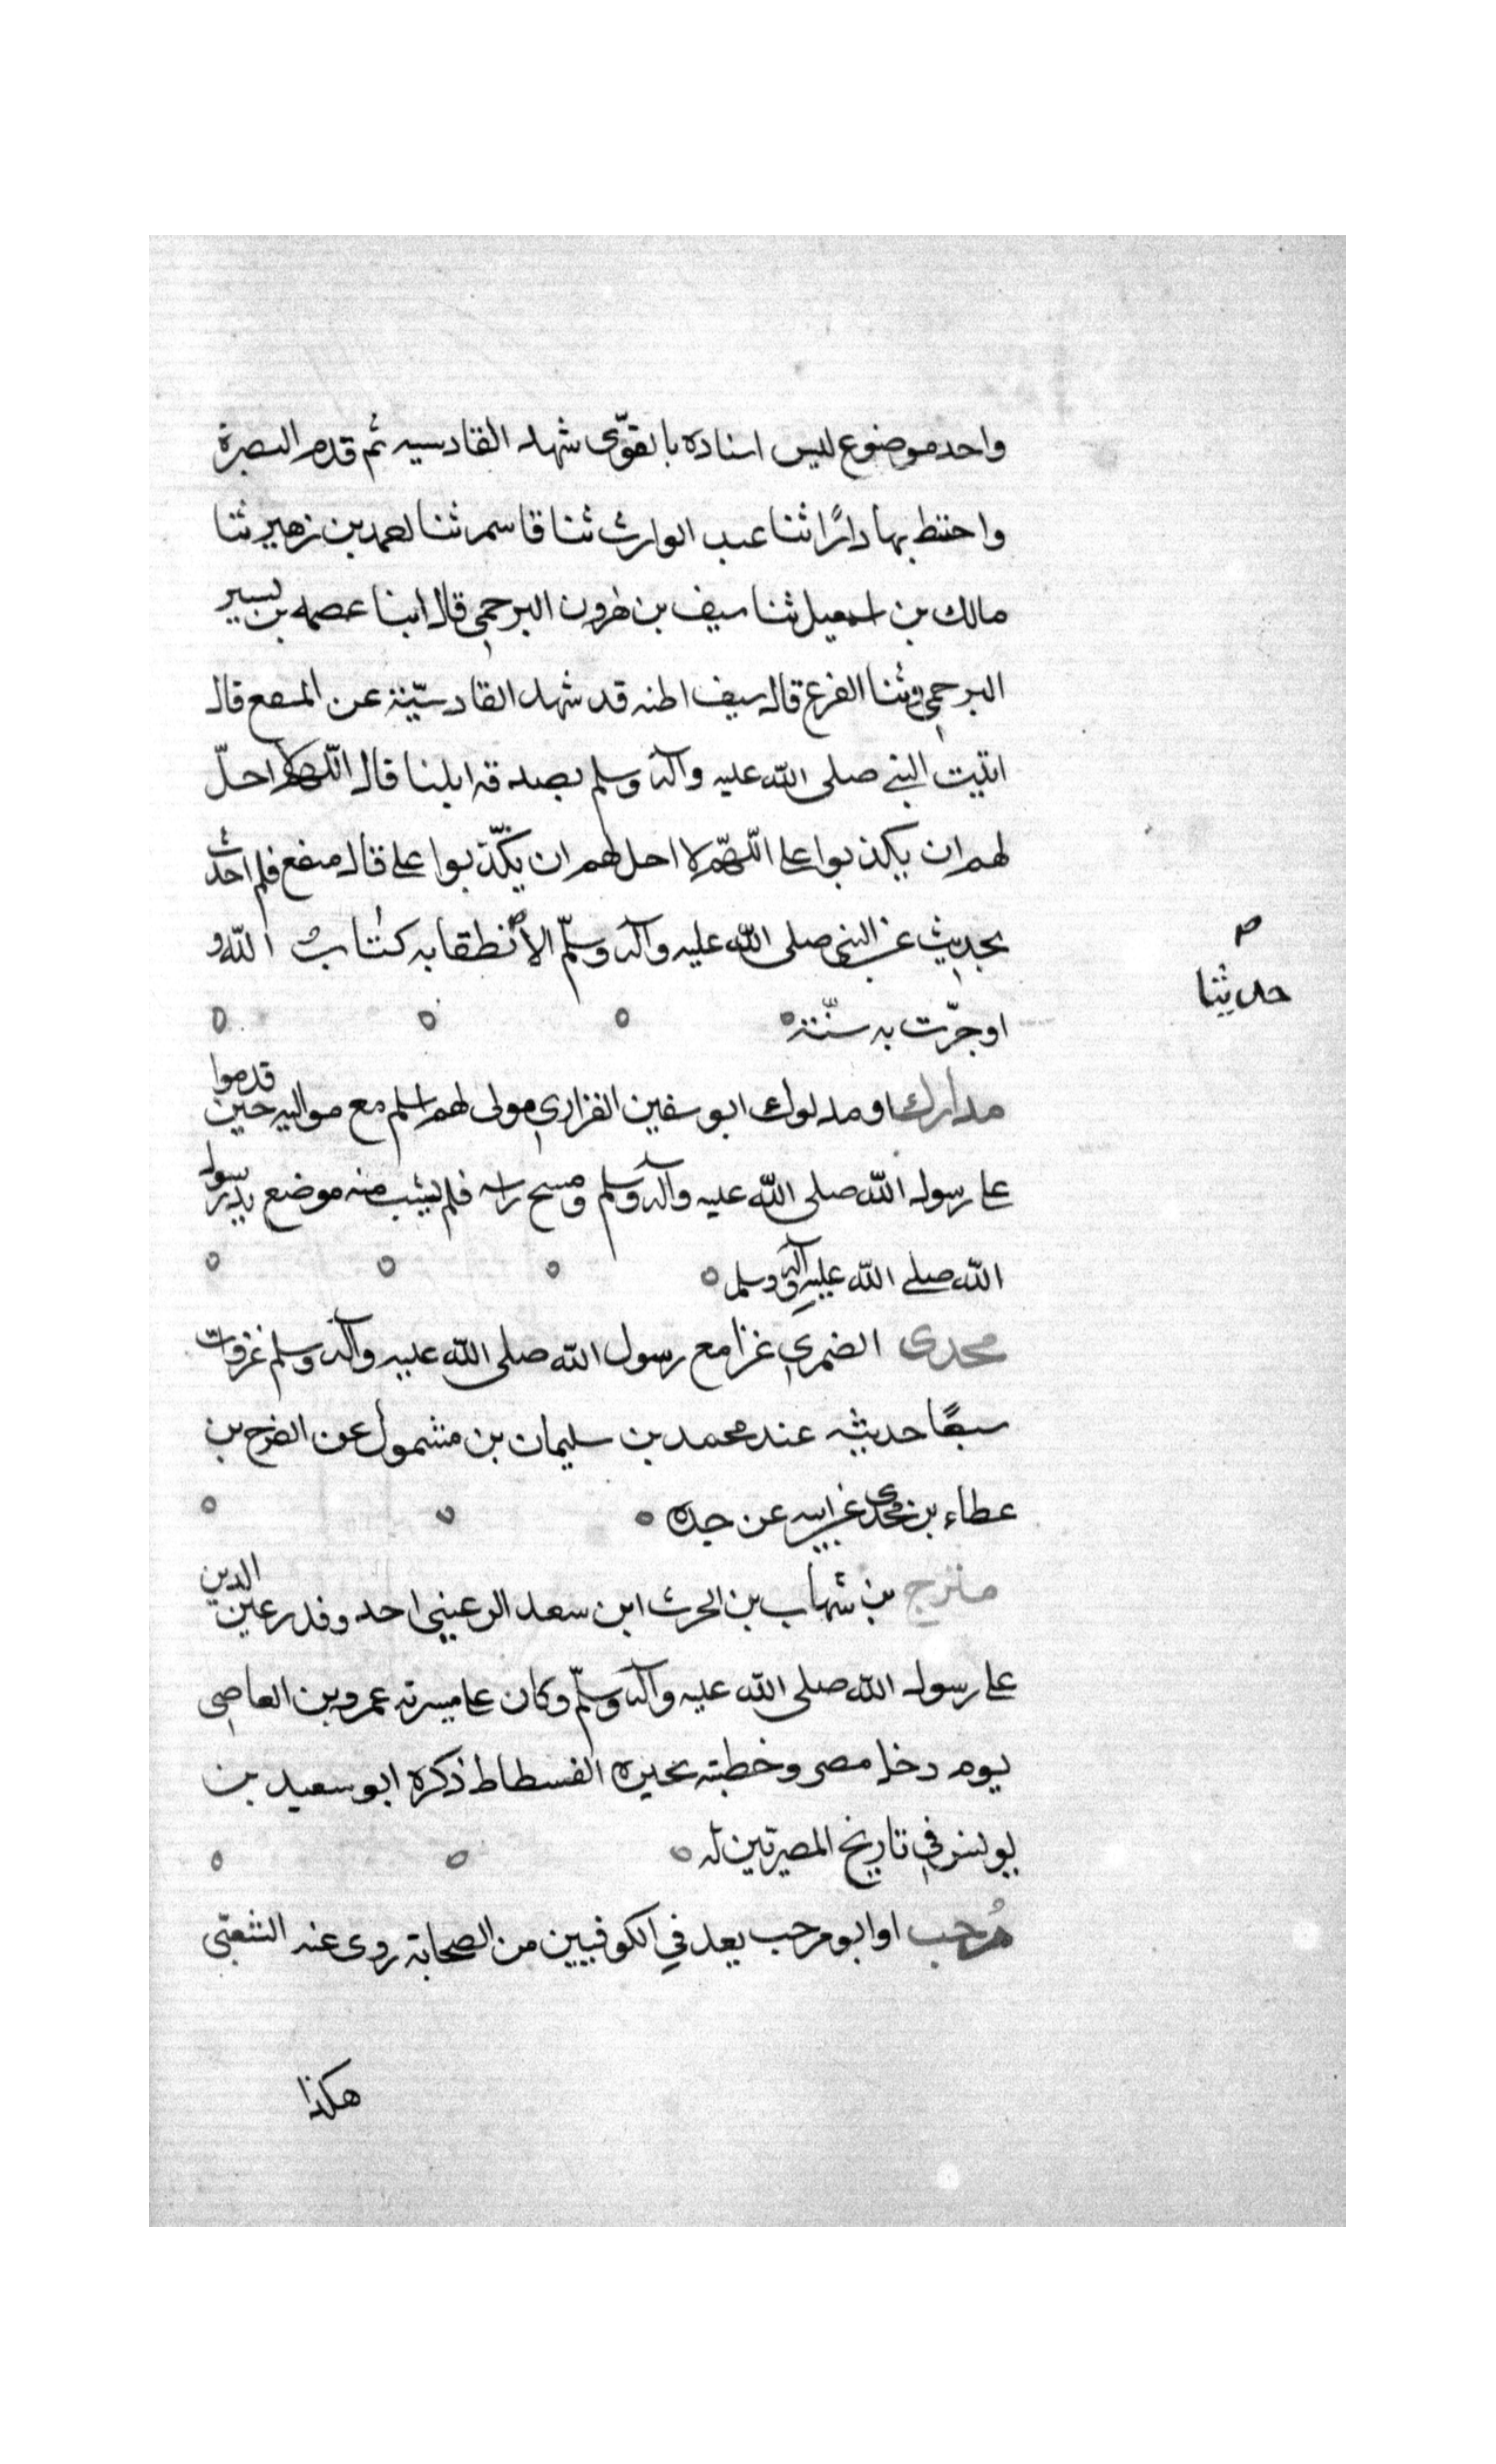 واحد موضوع ليس اسناده بالقوّى شهد القادسيه ثم قدم البصرة
واختط بها دارًا ثنا عبد الوارث ثنا قاسم ثنا احمد بن زهير ثنا
مالك بن اسمعيل ثنا سيف بن هرون البرجمي قال ابنا عصمه بن بسير
البرجمي ثنا الفزع قال سيف اظنه قد شهد القادسيّة عن المنقع قال
اتيت النبي صلى الله عليه وآله وسلم بصدقة ابلنا قال اللهم لا احلّ
لهم ان يكذبوا على اللهمّ لا احل لهم ان يكذّبوا على قال منقع فلم احدث
بحديث عن النبي صلى الله عليه وآله وسلّم الا نطقا به كتاب الله و
او جرّت به سنّة
حديثا
مدارك او مدلوك ابو سفين الفزاري مولى لهم اسلم مع مواليه حين قدموا
على رسول الله صلى الله عليه وآله وسلم ومسح راسه فلم يشب منه موضع يد رسول
الله صلى الله عليه وآله وسلم
مجدى الضمري غزا مع رسول الله صلى الله عليه وآله وسلم غزوات
سبعًا حديثه عند محمد بن سليمان بن مشمول عن الفرج بن
عطاء بن مجدى عن ابيه عن جده
بن شهاب بن الحرث ابن سعد الرعيني احد وفد رعين الدين
على رسول الله صلى الله عليه وآله وسلّم وكان على ميسرته عمرو بن العاصي
يوم دخل مصر وخطبته بحيره الفسطاط ذكره ابو سعيد بن
يونس في تاريخ المصريّين له
مُرحب او ابو مرحب يعد في الكوفيين من الصحابة روى عنه الشعبّي
هكذا